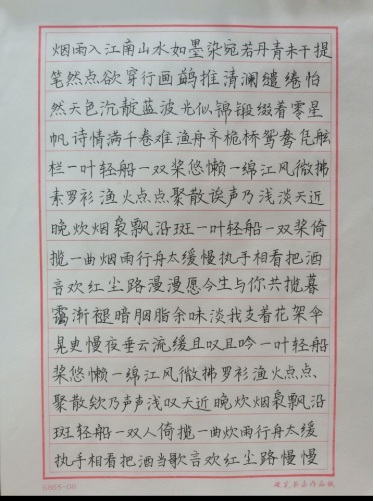 烟雨入江南山水如墨染宛若丹青未干提
笔然点欲穿行画鹢推清澜缱绻怡
然天色沉靛蓝波光似锦锻缀着零星
帆诗情满千卷难渔舟齐桅桥鸳鸯凭舷
栏一叶轻船一双桨悠懒一绵江风微拂
素罗衫渔火点点聚散诶声乃浅淡天近
晚炊烟袅飘沿斑一叶轻船一双桨倚
揽一曲烟雨行舟太缓慢执手相看把酒
言欢红尘路漫漫愿今生与你共揽暮
霭渐褪暗胭脂余味淡我支着花架伞
晃史慢夜垂云流缓且叹且吟一叶轻船
桨悠懒一绵江风微拂罗衫渔火点点、
聚散欸乃声声浅叹天近晚炊烟袅飘沿
斑轻船一双人倚揽一曲炊雨行舟太缓
执手相看把酒当歌言欢红尘路慢慢